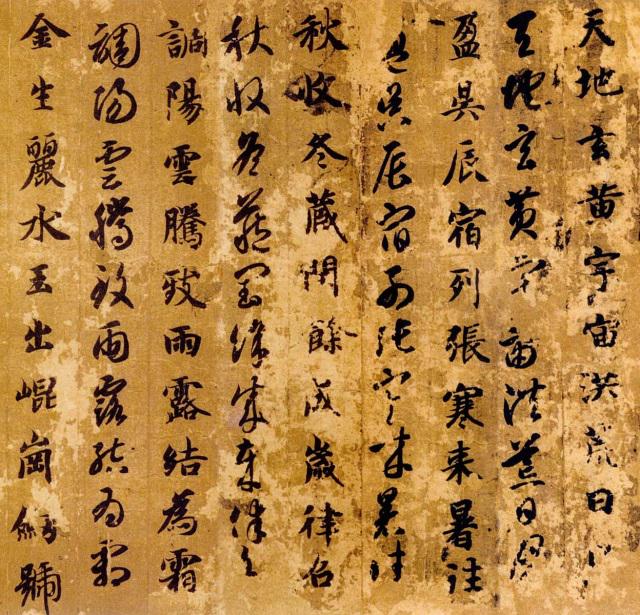 天地玄黃宇宙洪荒日
天地玄黃宇宙洪荒日月
盈昃辰宿列張寒來暑往
盈昃辰宿列張寒來暑往
秋收冬藏閏餘成歲律召
秋收冬藏閏餘成歲律召
調陽雲騰致雨露結為霜
調陽雲騰致雨露結為霜
金生麗水玉出崐崗劍號